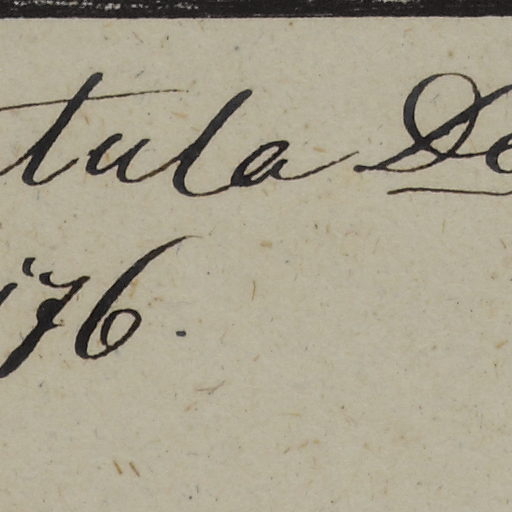 tula De
176.